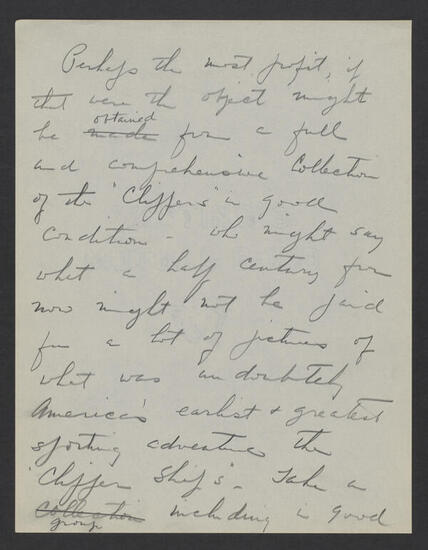 Perhaps the most profit, if
that were the object might
be made obtained from a full
and comprehensive Collection
of the "Clippers" in good
condition - who might say
what a half century from
now might not be paid
for a lot of pictures of
what was undoubtedly
America's earlist & greatest
sporting adventure the
"Clipper Ships". Take a
Collection group including in good